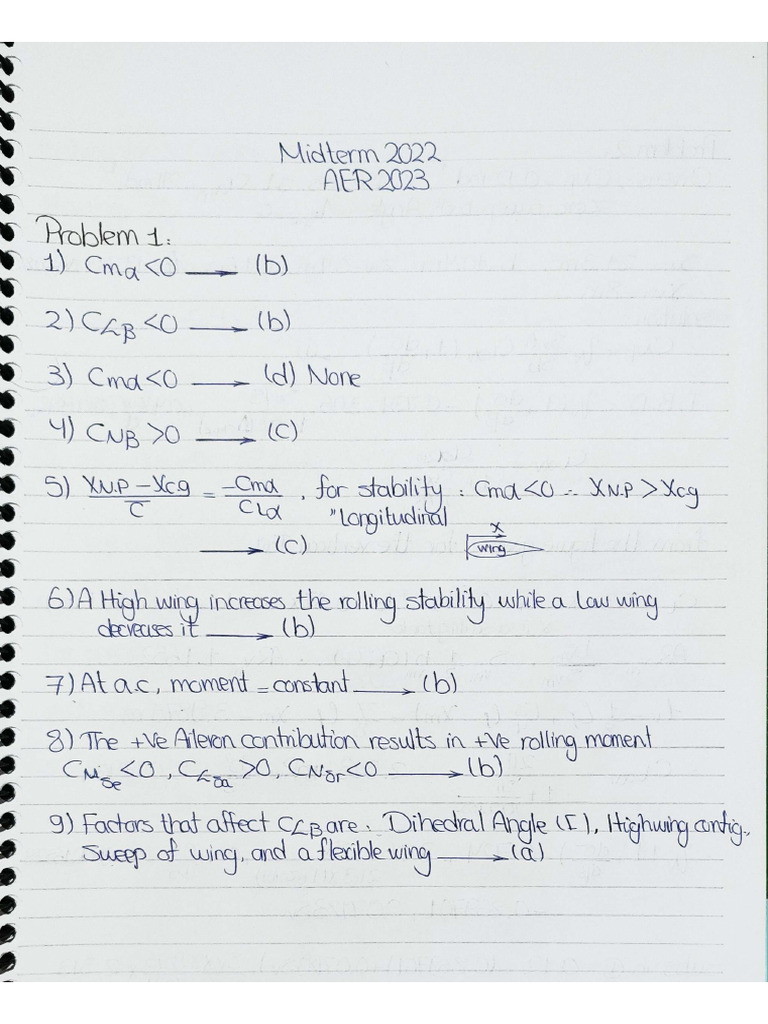 Midterm 2022
AER 2023
Problem 1:
1) Cmα <0 → (b)
2) CLβ <0 → (b)
3) Cmα <0 → (d) None
4) CNβ >0 → (c)
5) XN.P - Xcg / C = -Cmα / CLα , for stability : Cmα <0 ∴ XN.P > Xcg
"Longitudinal
→ (c)
X
wing
6) A High wing increases the rolling stability while a Low wing
decreases it → (b)
7) At a.c, moment = constant → (b)
8) The +ve Aileron contribution results in +ve rolling moment
CMδe <0 , CLδa >0, CNδr <0 → (b)
9) Factors that affect CLβ are : Dihedral Angle (Γ), High wing config.,
Sweep of wing, and a flexible wing → (a)